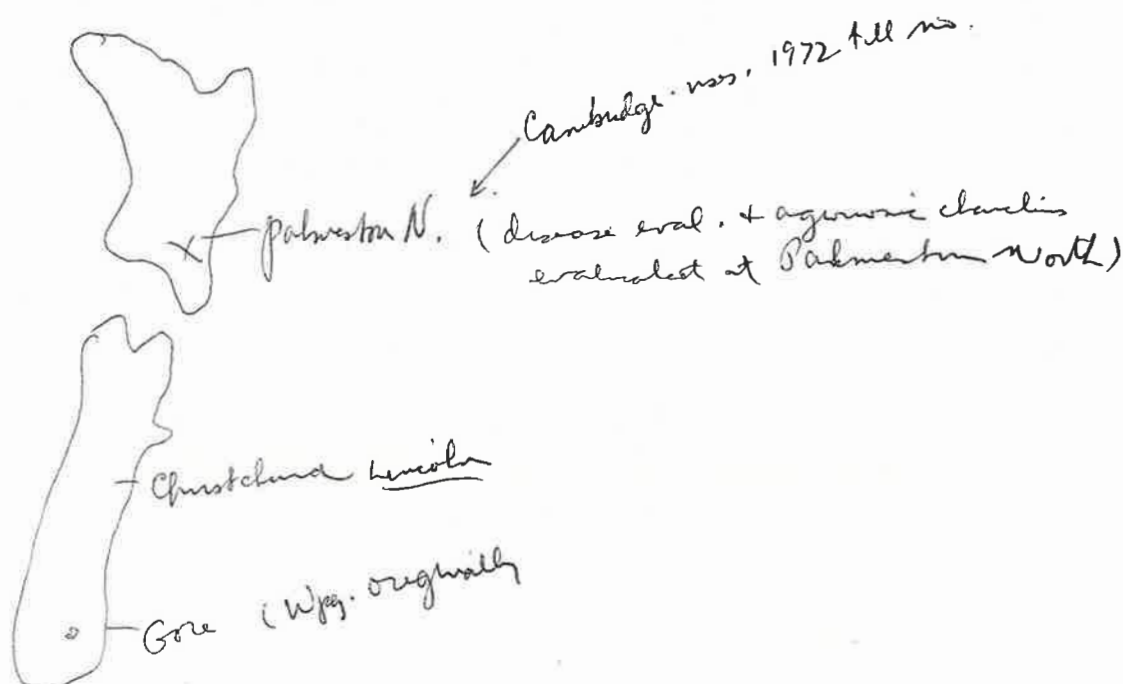 Cambridge. uses, 1972 till no.
palmerston N. (disease eval. + agronomic
evaluated at Palmerston North)
Christchurch Lincoln
Gore (Wpg. originally